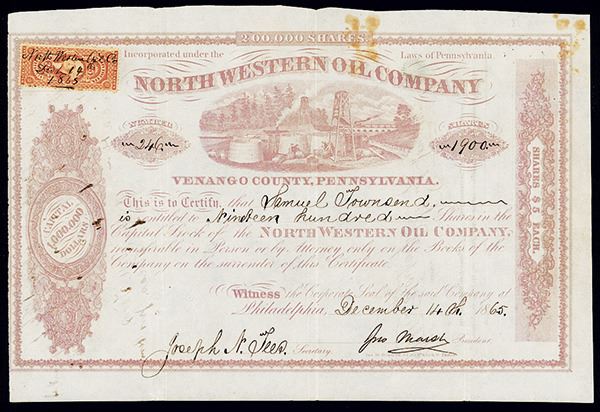 200,000 SHARES.
Incorporated under the Laws of Pennsylvania.
NORTH WESTERN OIL COMPANY
NUMBER SHARES
246 1900
VENANGO COUNTY, PENNSYLVANIA.
This is to Certify, that Samuel Townsend,
is entitled to Nineteen hundred Shares in the
Capital Stock of the NORTH WESTERN OIL COMPANY,
transferable in Person or by Attorney, only on the Books of the
Company on the surrender of this Certificate.
Witness the Corporate Seal of the said Company at
Philadelphia, December 14th. 1865.
Joseph N. Secretary. Jno Marsh President.
CAPITAL
1,000,000
DOLLARS
SHARES $5 EACH.
14
1865